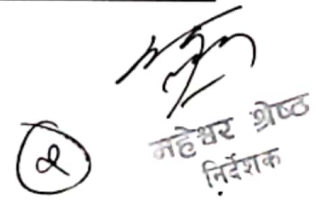 महेश्वर श्रेष्ठ
निर्देशक
२